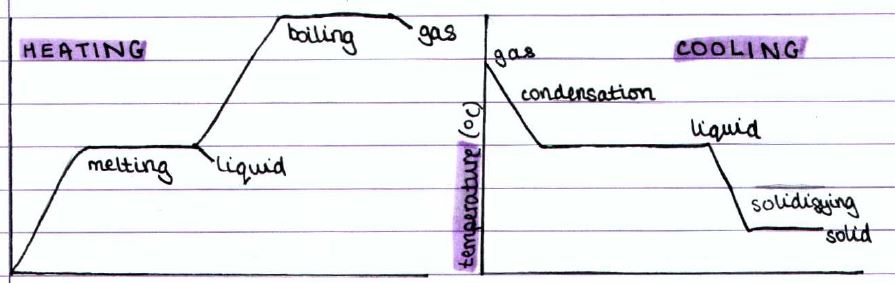 HEATING
boiling
gas
melting
liquid
temperature (°C)
COOLING
gas
condensation
liquid
solidifying
solid